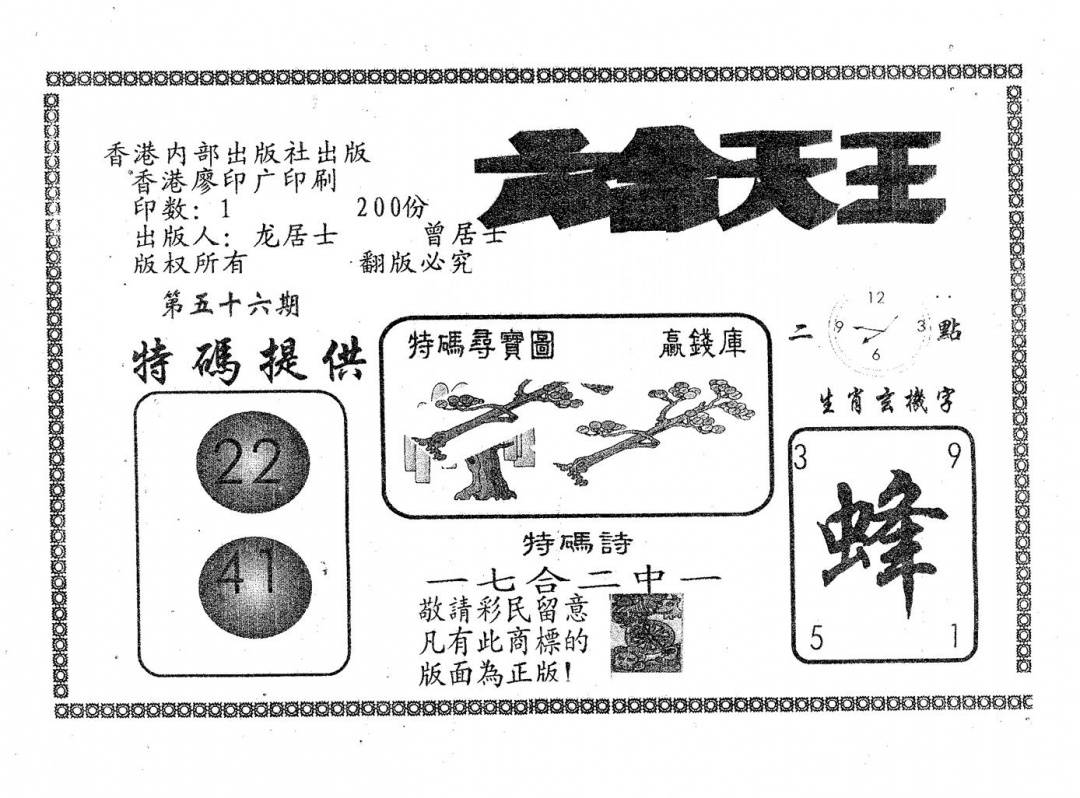 六合天王
香港内部出版社出版
香港廖印广印刷
印数：1 200份
出版人：龙居士 曾居士
版权所有 翻版必究
第五十六期
特碼提供
22
41
特碼尋寶圖 贏錢庫
二 點
12
9 3
6
生肖玄機字
3 9
蜂
5 1
特碼詩
一七合二中一
敬請彩民留意
凡有此商標的
版面為正版！